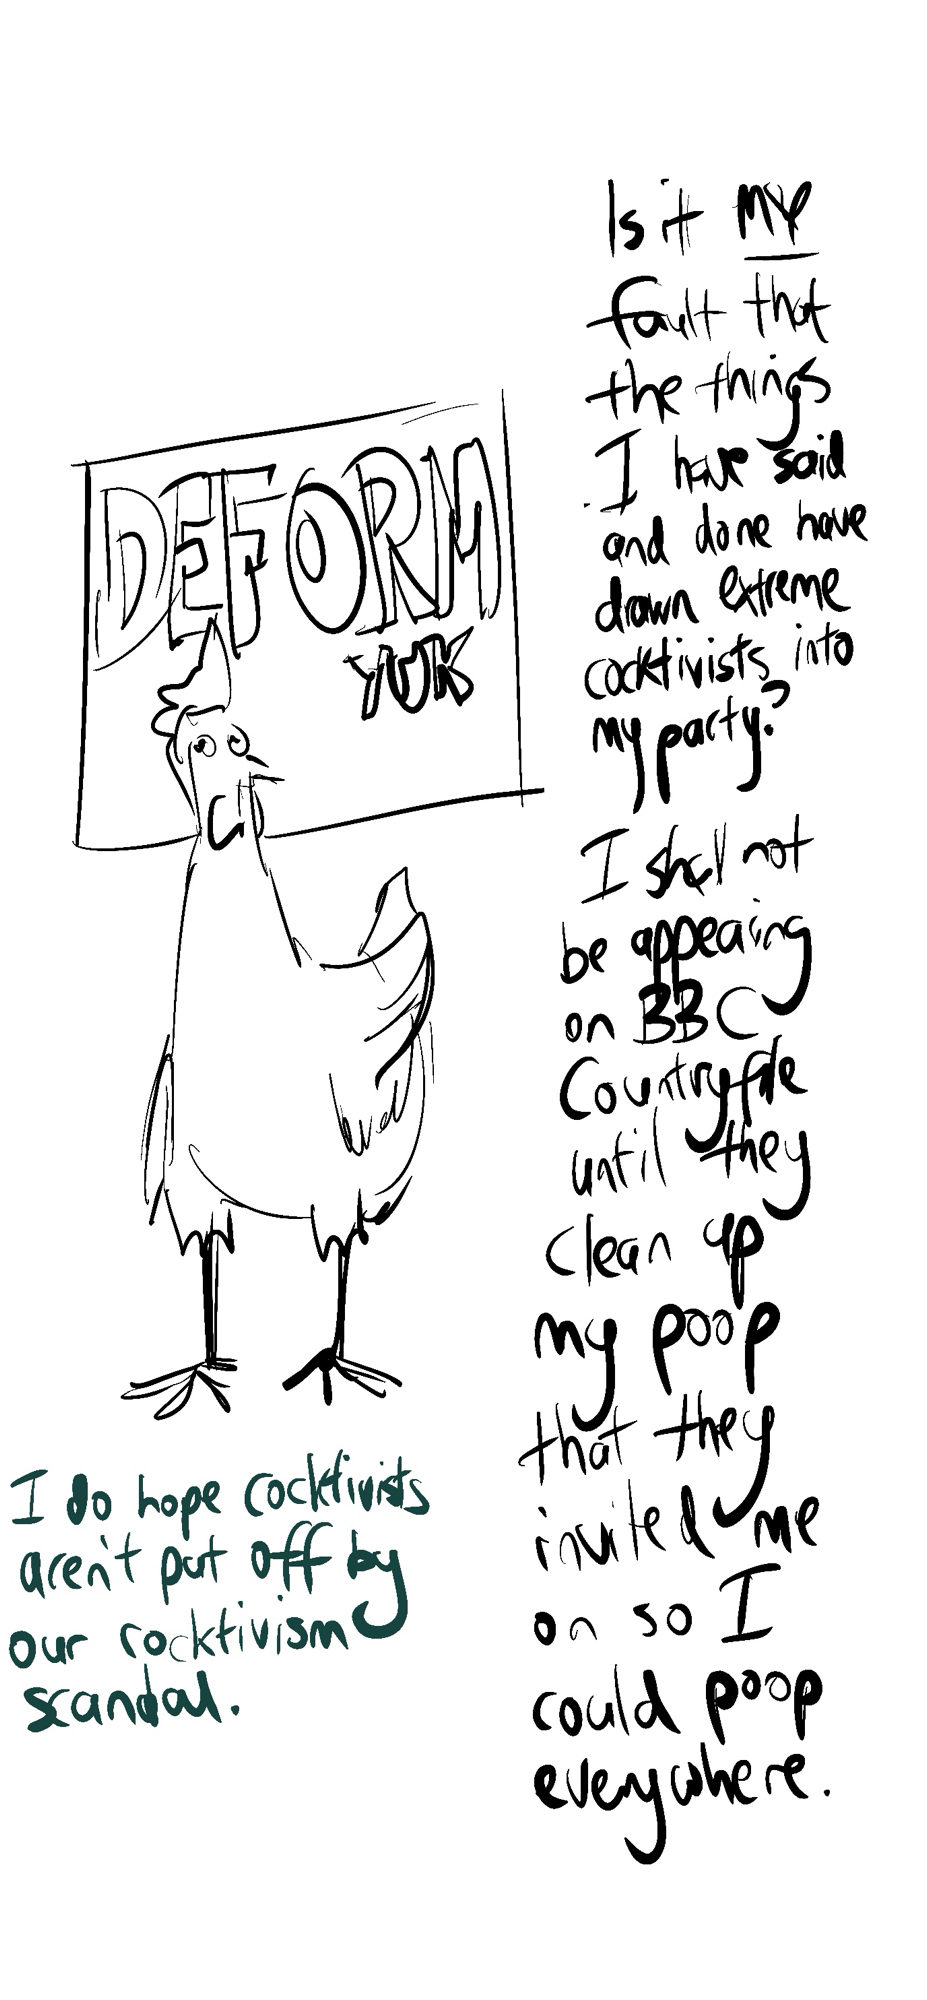 DEFORM
YUK
Is it my
fault that
the things
I have said
and done have
drawn extreme
cocktivists into
my party?
I shall not
be appearing
on BBC
Countryfile
until they
clean up
my poop
that they
invited me
on so I
could poop
everywhere.
I do hope cocktivists
aren't put off by
our cocktivism
scandal.